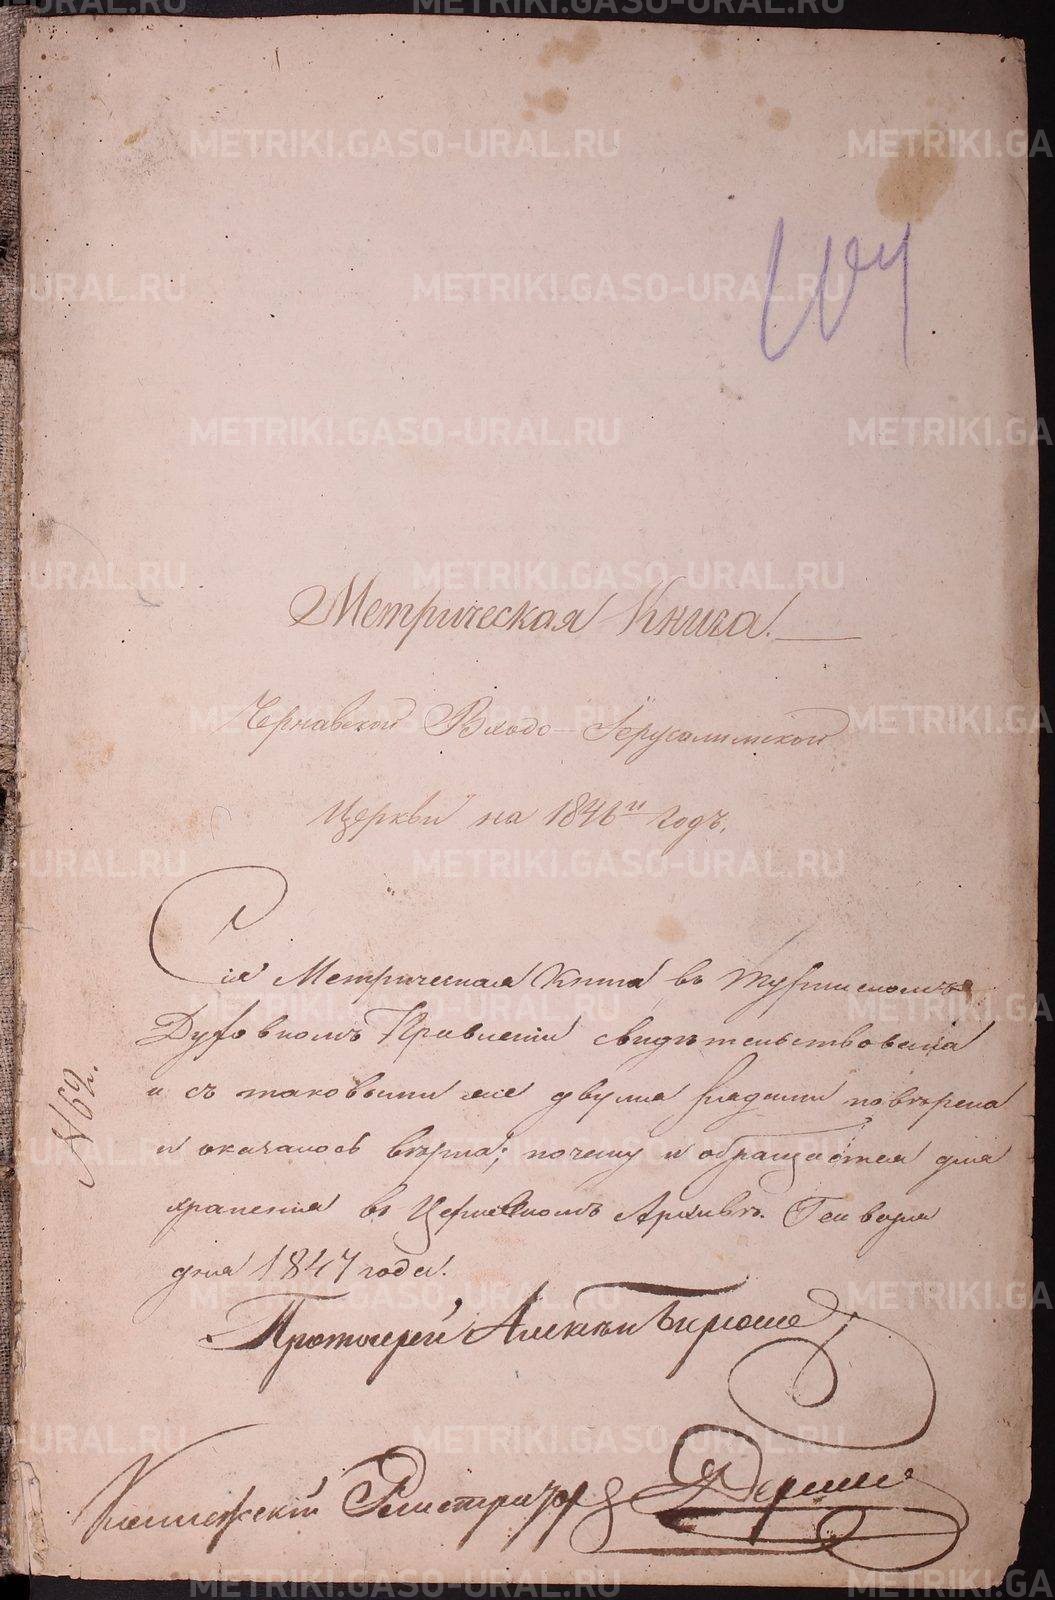 Метрическая Книга.
Чернавской Входо-Іерусалимской
Церкви на 1846й годъ.
Сія Метрическая Книга въ Туринскомъ
Духовномъ Правленіи свидѣтельствована
и съ таковыми же двумя повѣрена
и оказалось вѣрна; почему и обращается для
храненія въ Церковномъ Архивѣ. Генваря
дня 1847 года.
Протоіерей Алексѣй
Коллежскій Регистраторъ
№ 69
METRIKI.GASO-URAL.RU